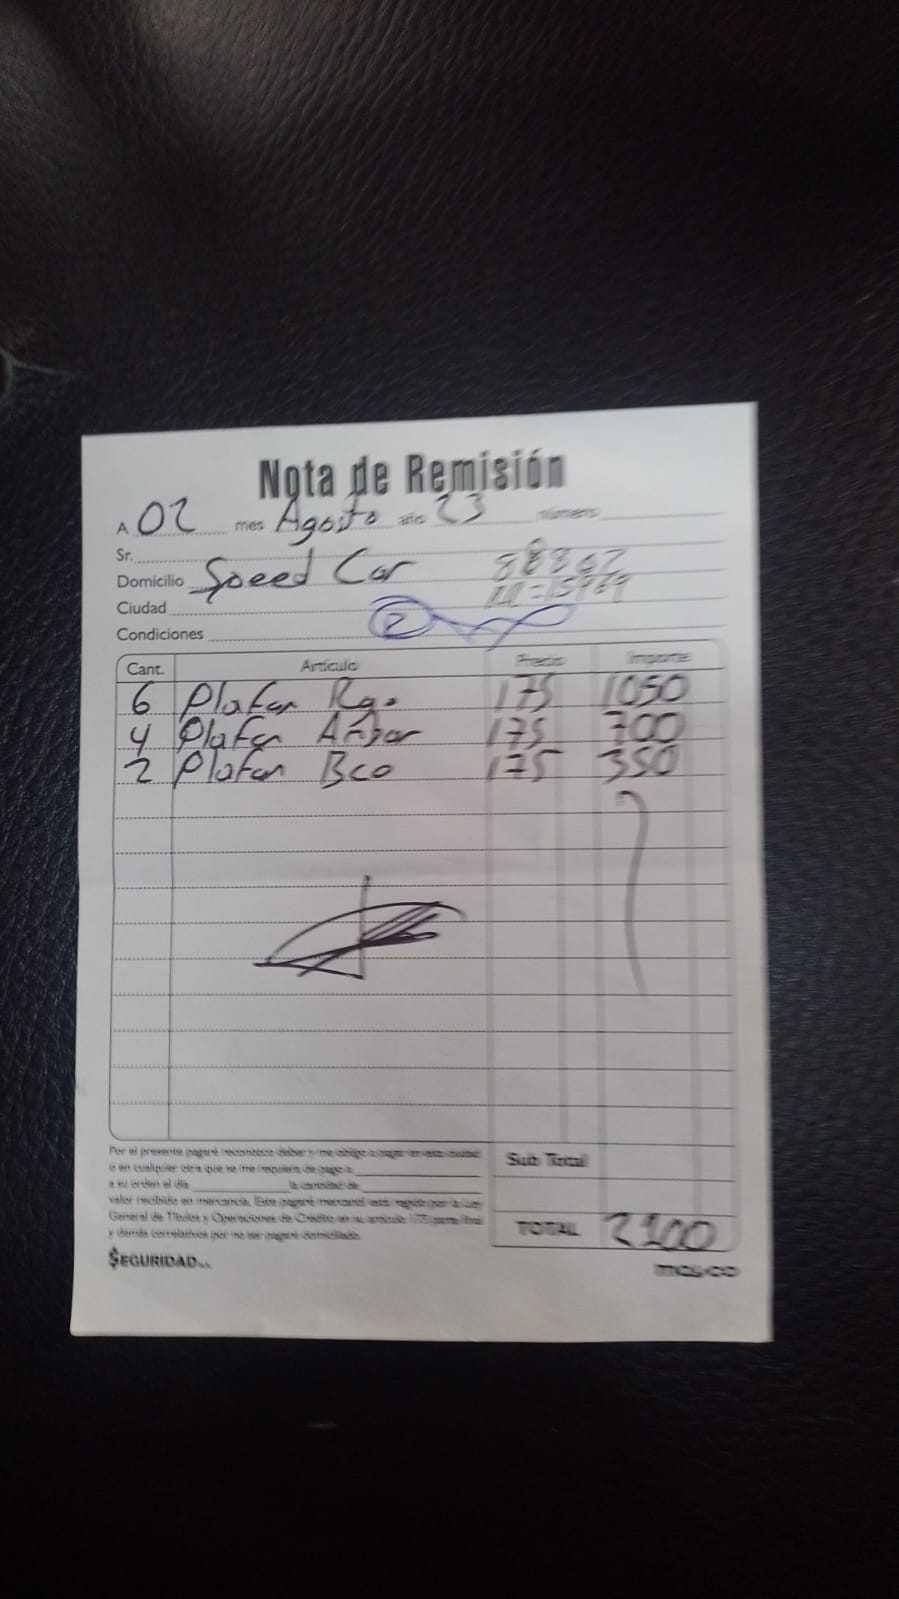 Nota de Remisión
A 02 mes Agosto año 23 número
Sr.
Domicilio Speed Car
Ciudad
Condiciones 2
Cant. Artículo Precio Importe
6 Plafon Rgo. 175 1050
4 Plafon Ambar 175 700
2 Plafon Bco 175 350
Por el presente pagaré reconozco deber y me obligo a pagar en esta ciudad
o en cualquier otra que se me requiera de pago a
a su orden el día la cantidad de
valor recibido en mercancía. Este pagaré mercantil está regido por la Ley
General de Títulos y Operaciones de Crédito en su artículo 173 parte final
y demás correlativos por no ser pagaré domiciliado.
Sub Total
TOTAL 2100
$EGURIDAD...